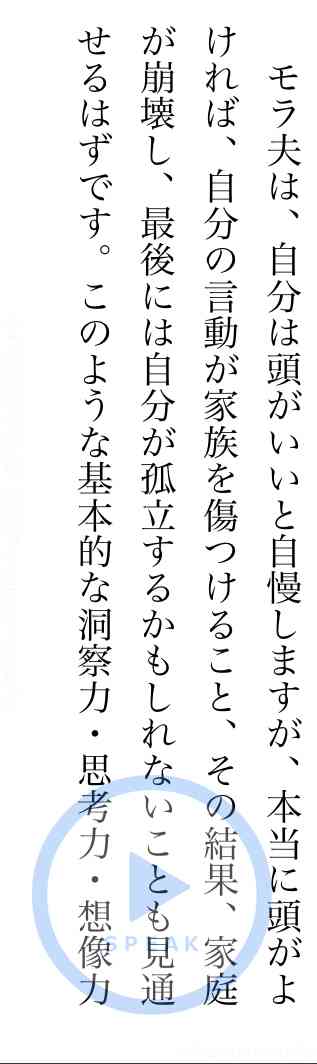 モラ夫は、自分は頭がいいと自慢しますが、本当に頭がよ
ければ、自分の言動が家族を傷つけること、その結果、家庭
が崩壊し、最後には自分が孤立するかもしれないことも見通
せるはずです。このような基本的な洞察力・思考力・想像力
SPEAK